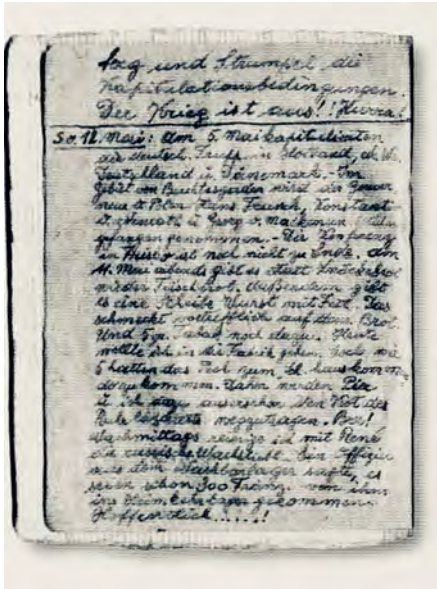 und Strumpel die
Kapitulationsbedingungen.
Der Krieg ist aus!! Hurra!
So. 12. Mai: Am 5. Mai kapitulierten
die deutsch. Trupp. in Holland,
Deutschland u. Dänemark. - Im
Gebiet von Berchtesgaden wird der Gouver
neur v. Polen Hans Frank, Konstant
v. Neurath u. Georg v. Mackensen
gefangen genommen. - Die Konferenz
in ist noch nicht zu Ende. Am
11. Mai abends gibt es statt Knäckebrot
wieder Frischbrot. Außerdem gibt
es eine Scheibe Wurst mit Fett. Das
schmeckt vortrefflich auf dem Brot.
Und 5 gr. Tabak noch dazu. Heute
wollte ich in die Fabrik gehen. Doch wir
5 hatten das Pech zum
dazukommen. Dann werden
u. ich dazu auserschen den Kot des
wegzutragen. Brr!
Nachmittags reinige ich mit René
die russische Wachstube. Ein Offizier
aus dem Nachbarlager sagte, es
seien schon 300 Franz. von ihm
ins Heimkehrlager gekommen.
Hoffentlich......!